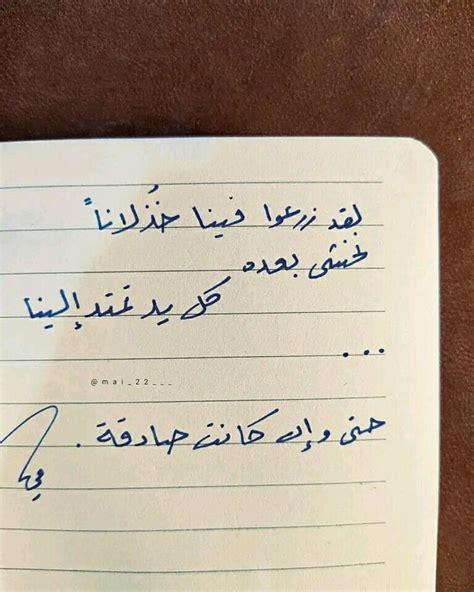 لقد زرعوا فينا خُذلاناً
نخشى بعده
كل يد تمتد إلينا
...
@mai_22___
حتى وإن كانت صادقة .
مي